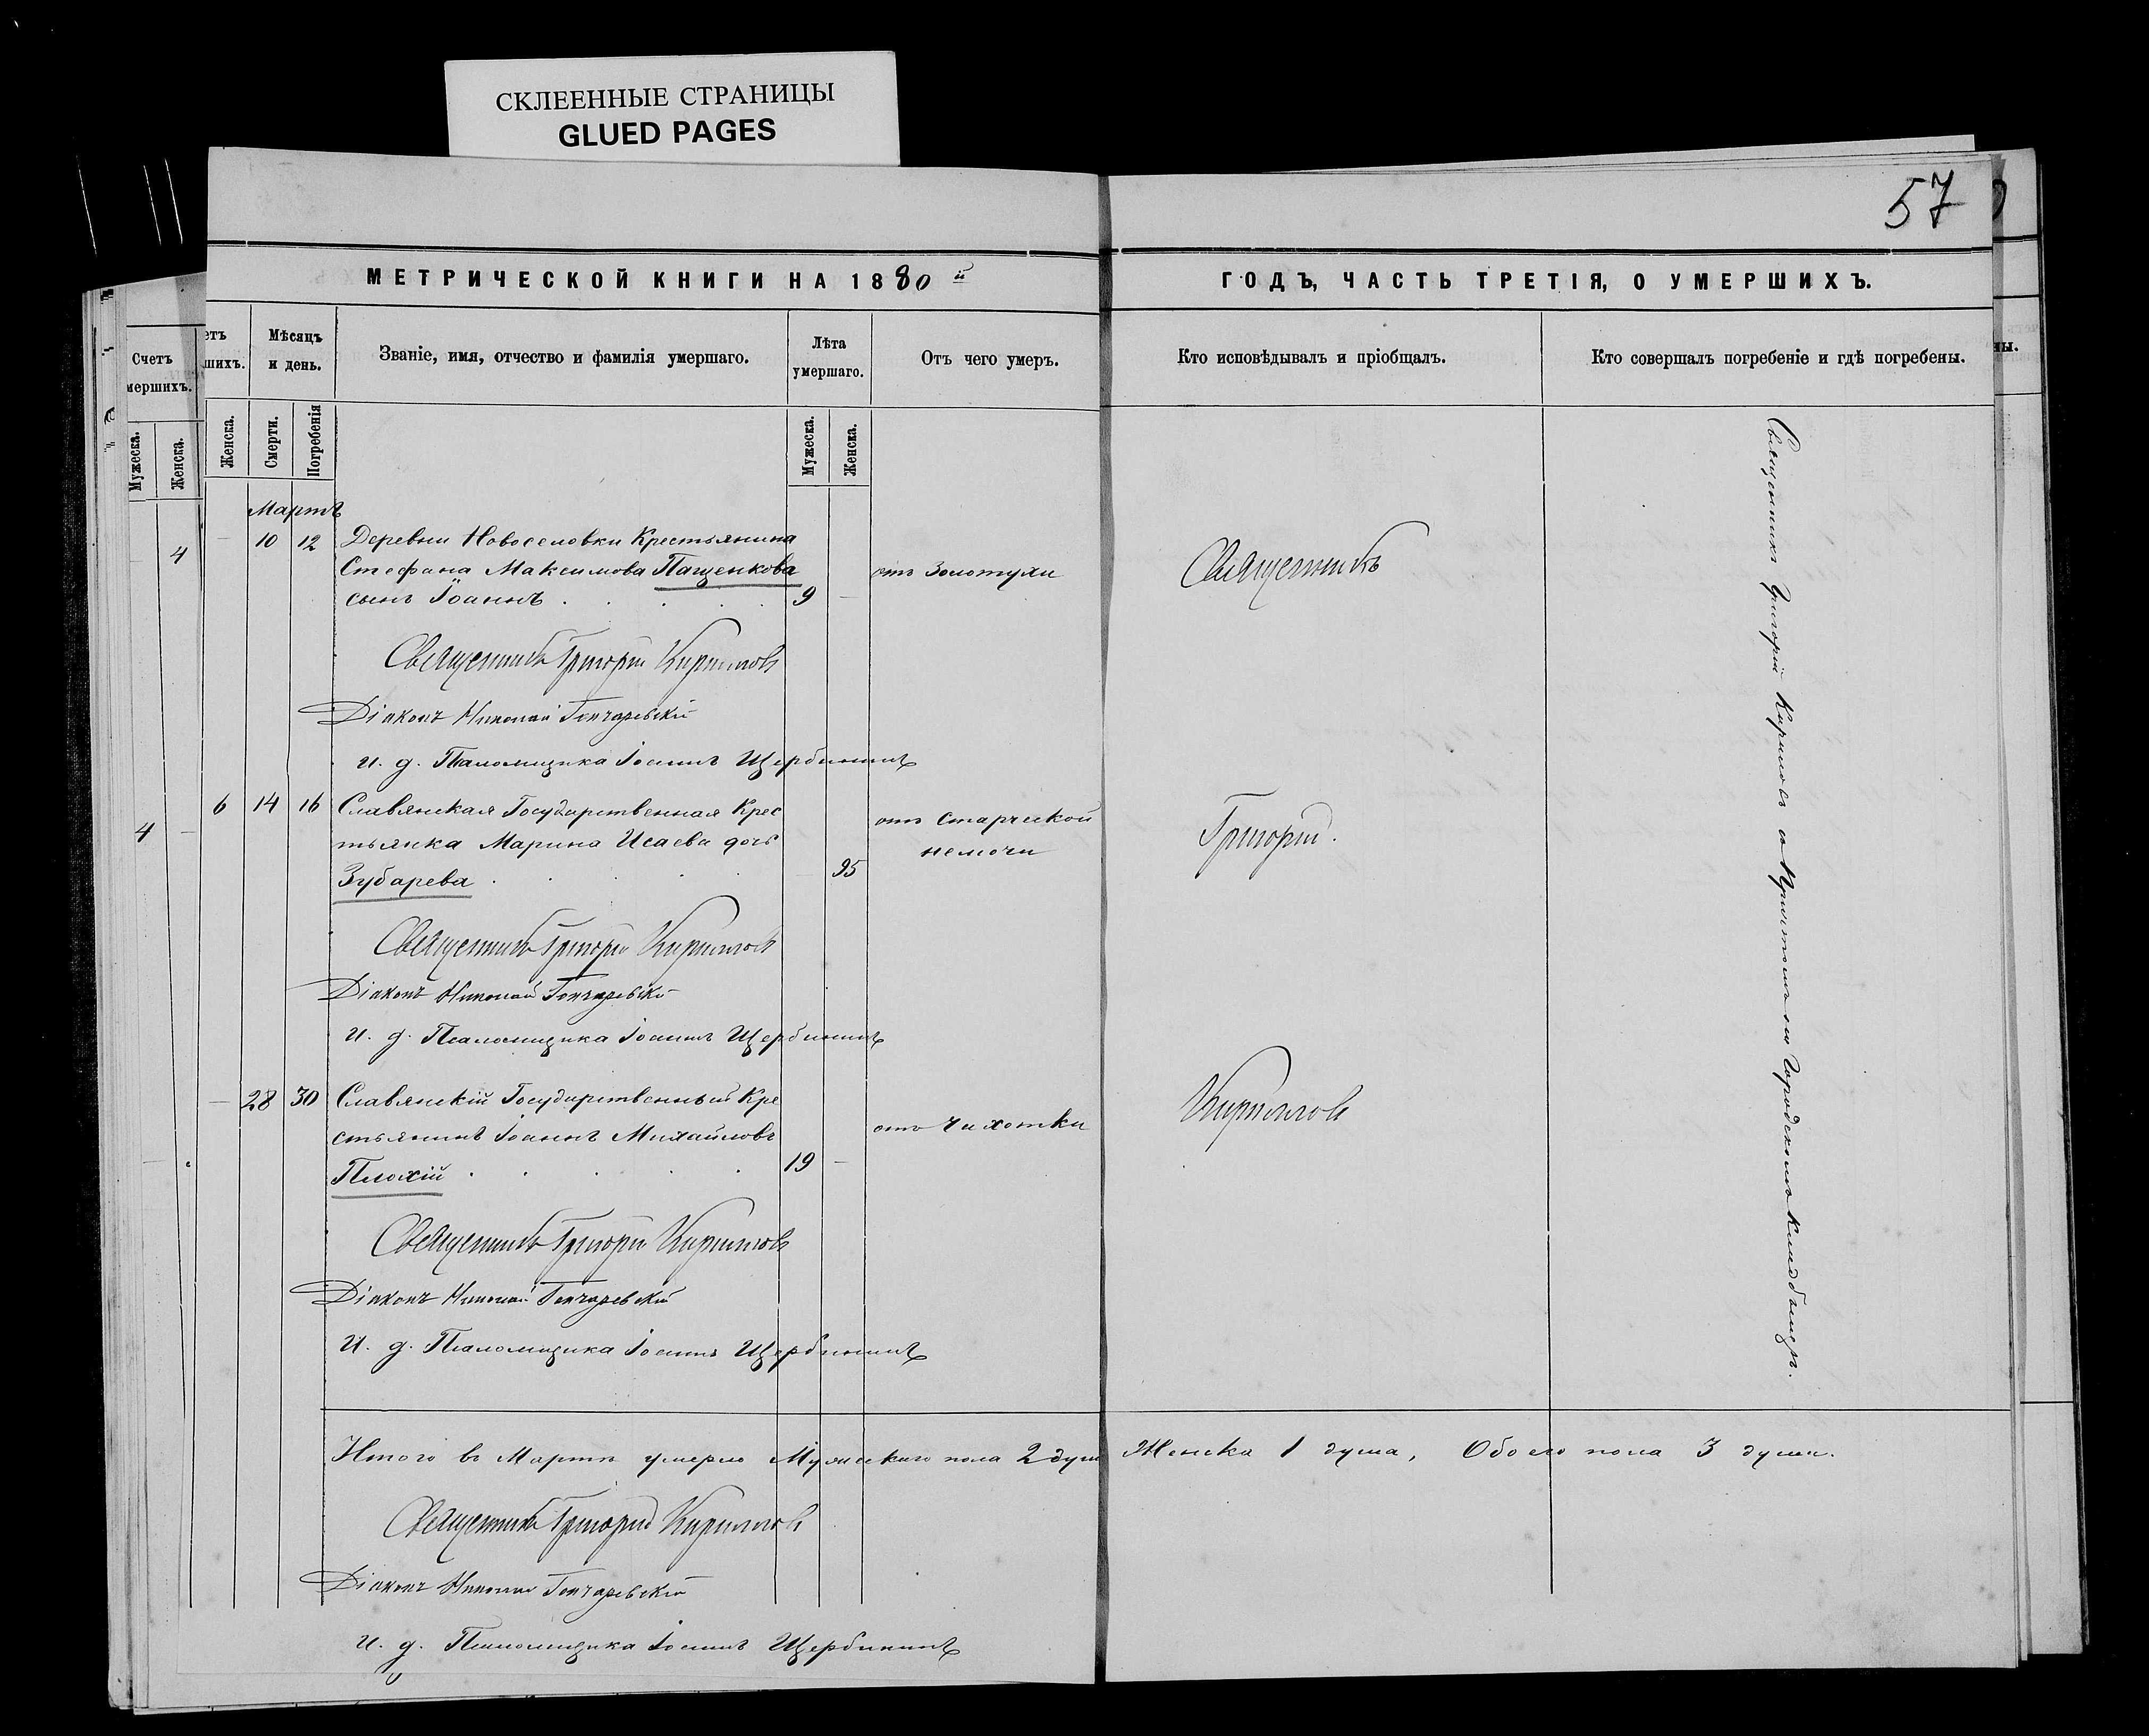 СКЛЕЕННЫЕ СТРАНИЦЫ
GLUED PAGES
57
МЕТРИЧЕСКОЙ КНИГИ НА 1880й
ГОДЪ, ЧАСТЬ ТРЕТІЯ, О УМЕРШИХЪ.
Счетъ
мершихъ.
Мужеска.
Женска.
етъ
шихъ.
Женска.
Мѣсяцъ
и день.
Смерти.
Погребенія
Званіе, имя, отчество и фамилія умершаго.
Лѣта
умершаго.
Мужеска.
Женска.
Отъ чего умеръ.
Кто исповѣдывалъ и пріобщалъ.
Кто совершалъ погребеніе и гдѣ погребены.
ны.
Мартъ
4
10 12 Деревни Новоселовки Крестьянина
Стефана Максимова Пащенкова
отъ Золотухи
сынъ Іоаннъ 9
Священникъ
Священникъ Григорій Кирилловъ
Діаконъ Николай Гончаревскій
и. д. Псаломщика Іоаннъ Щербининъ
4
6 14 16 Славянская Государственная Крес
тьянка Марина Исаева дочь
Зубарева 95
отъ старческой
немочи
Григорій.
Священникъ Григорій Кирилловъ
Діаконъ Николай Гончаревскій
и. д. Псаломщика Іоаннъ Щербининъ
28 30 Славянскій Государственный Кре
стьянинъ Іоаннъ Михайловъ
Плохій 19
отъ чахотки
Кирилловъ
Священникъ Григорій Кирилловъ
Діаконъ Николай Гончаревскій
И. д. Псаломщика Іоаннъ Щербининъ
Священникъ Григорій Кириловъ на Городскомъ кладбищѣ.
Итого въ Мартѣ умерло Мужескаго пола 2 душ Женска 1 душа, Обоего пола 3 души.
Священникъ Григорій Кирилловъ
Діаконъ Николай Гончаревскій
и. д. Псаломщика Іоаннъ Щербининъ